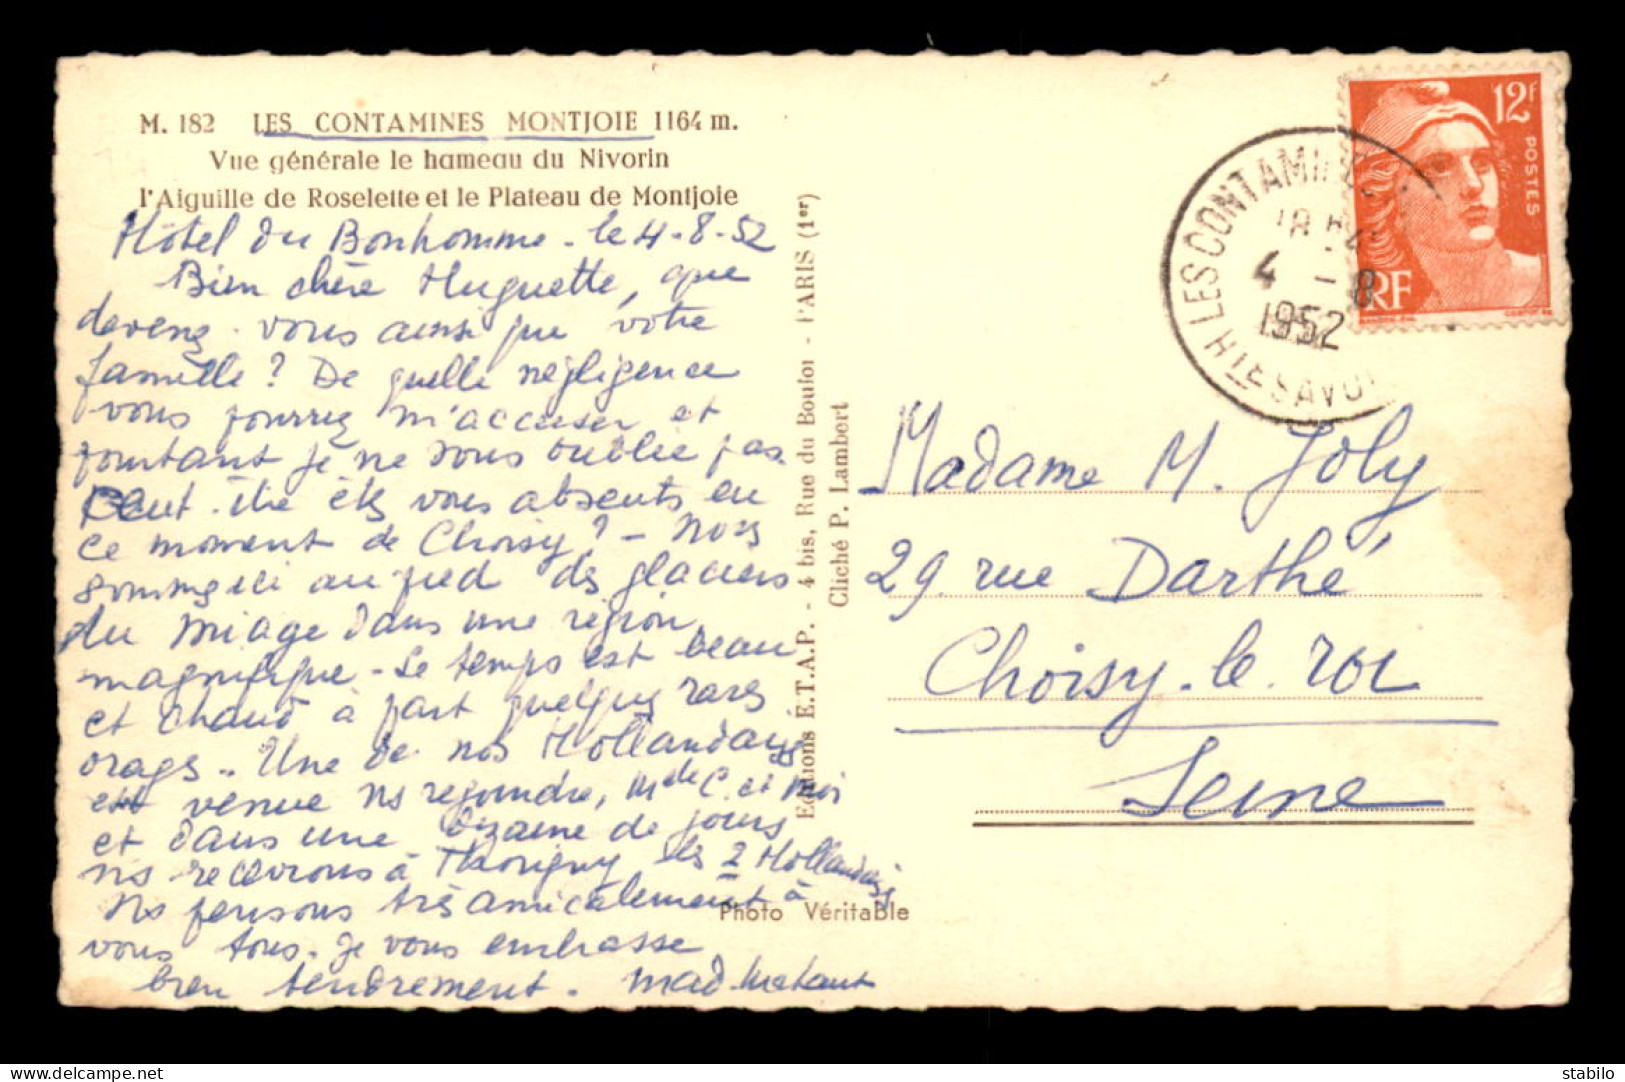 M. 182 LES CONTAMINES MONTJOIE 1164 m.
Vue générale le hameau du Nivorin
l'Aiguille de Roselette et le Plateau de Montjoie
Hôtel du Bonhomme - le 4-8-52
Bien chère Huguette, que
devenez-vous ainsi que votre
famille? De quelle négligence
vous pourrez m'accuser et
pourtant je ne vous oublie pas.
Peut-être êtes vous absents en
ce moment de Choisy? - Nous
sommes ici au pied des glaciers
du Miage dans une région
magnifique - Le temps est beau
et chaud à part quelques rares
orages.. Une de nos Hollandaises
est venue ns rejoindre, Mde C. et moi
et dans une dizaine de jours
ns recevrons à Thorigny les 2 Hollandaises
Ns pensons très amicalement à
vous tous. Je vous embrasse
bien tendrement. Mad.
Editions E.T.A.P. - 4 bis, Rue du Bouloi - PARIS (1er)
Cliché P. Lambert
Photo Véritable
12F
POSTES
RF
LES CONTAMINES
18
4 - 8
1952
HTE SAVOIE
Madame M. Joly
29 rue Darthé
Choisy-le-roi
Seine
delcampe.net
stabilo